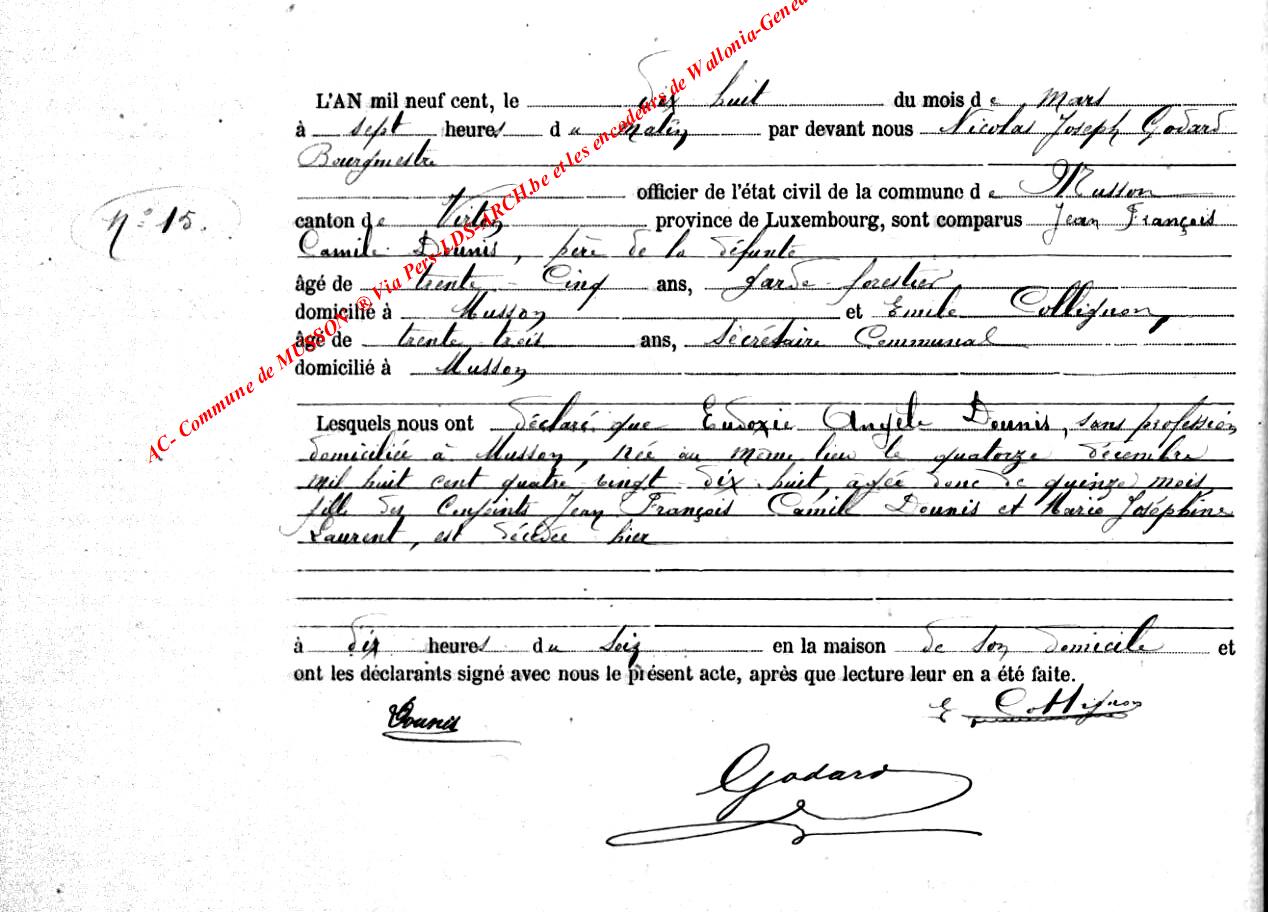 AC- Commune de MUSSON ® Via Pers-LDS-ARCH.be et les encodeurs de Wallonia-Genea
L'AN mil neuf cent, le dix huit du mois de Mars
à sept heures du matin par devant nous Nicolas Joseph Godard
Bourgmestre
officier de l'état civil de la commune de Musson
N° 15.
canton de Virton province de Luxembourg, sont comparus Jean François
Camille Dounis, père de la défunte
âgé de trente-Cinq ans, garde-forestier
domicilié à Musson et Emile Collignon,
âgé de trente trois ans, Sécrétaire Communal
domicilié à Musson
Lesquels nous ont déclaré que Eudoxie Angèle Dounis, sans profession
domiciliée à Musson, née au même lieu le quatorze décembre
mil huit cent quatre vingt-dix huit, agée donc de quinze mois,
fille des Conjoints Jean François Camill Dounis et Marie Joséphine
Laurent, est décédée hier
à dix heures du soir en la maison de son domicile et
ont les déclarants signé avec nous le présent acte, après que lecture leur en a été faite.
Dounis E Collignon
Godard